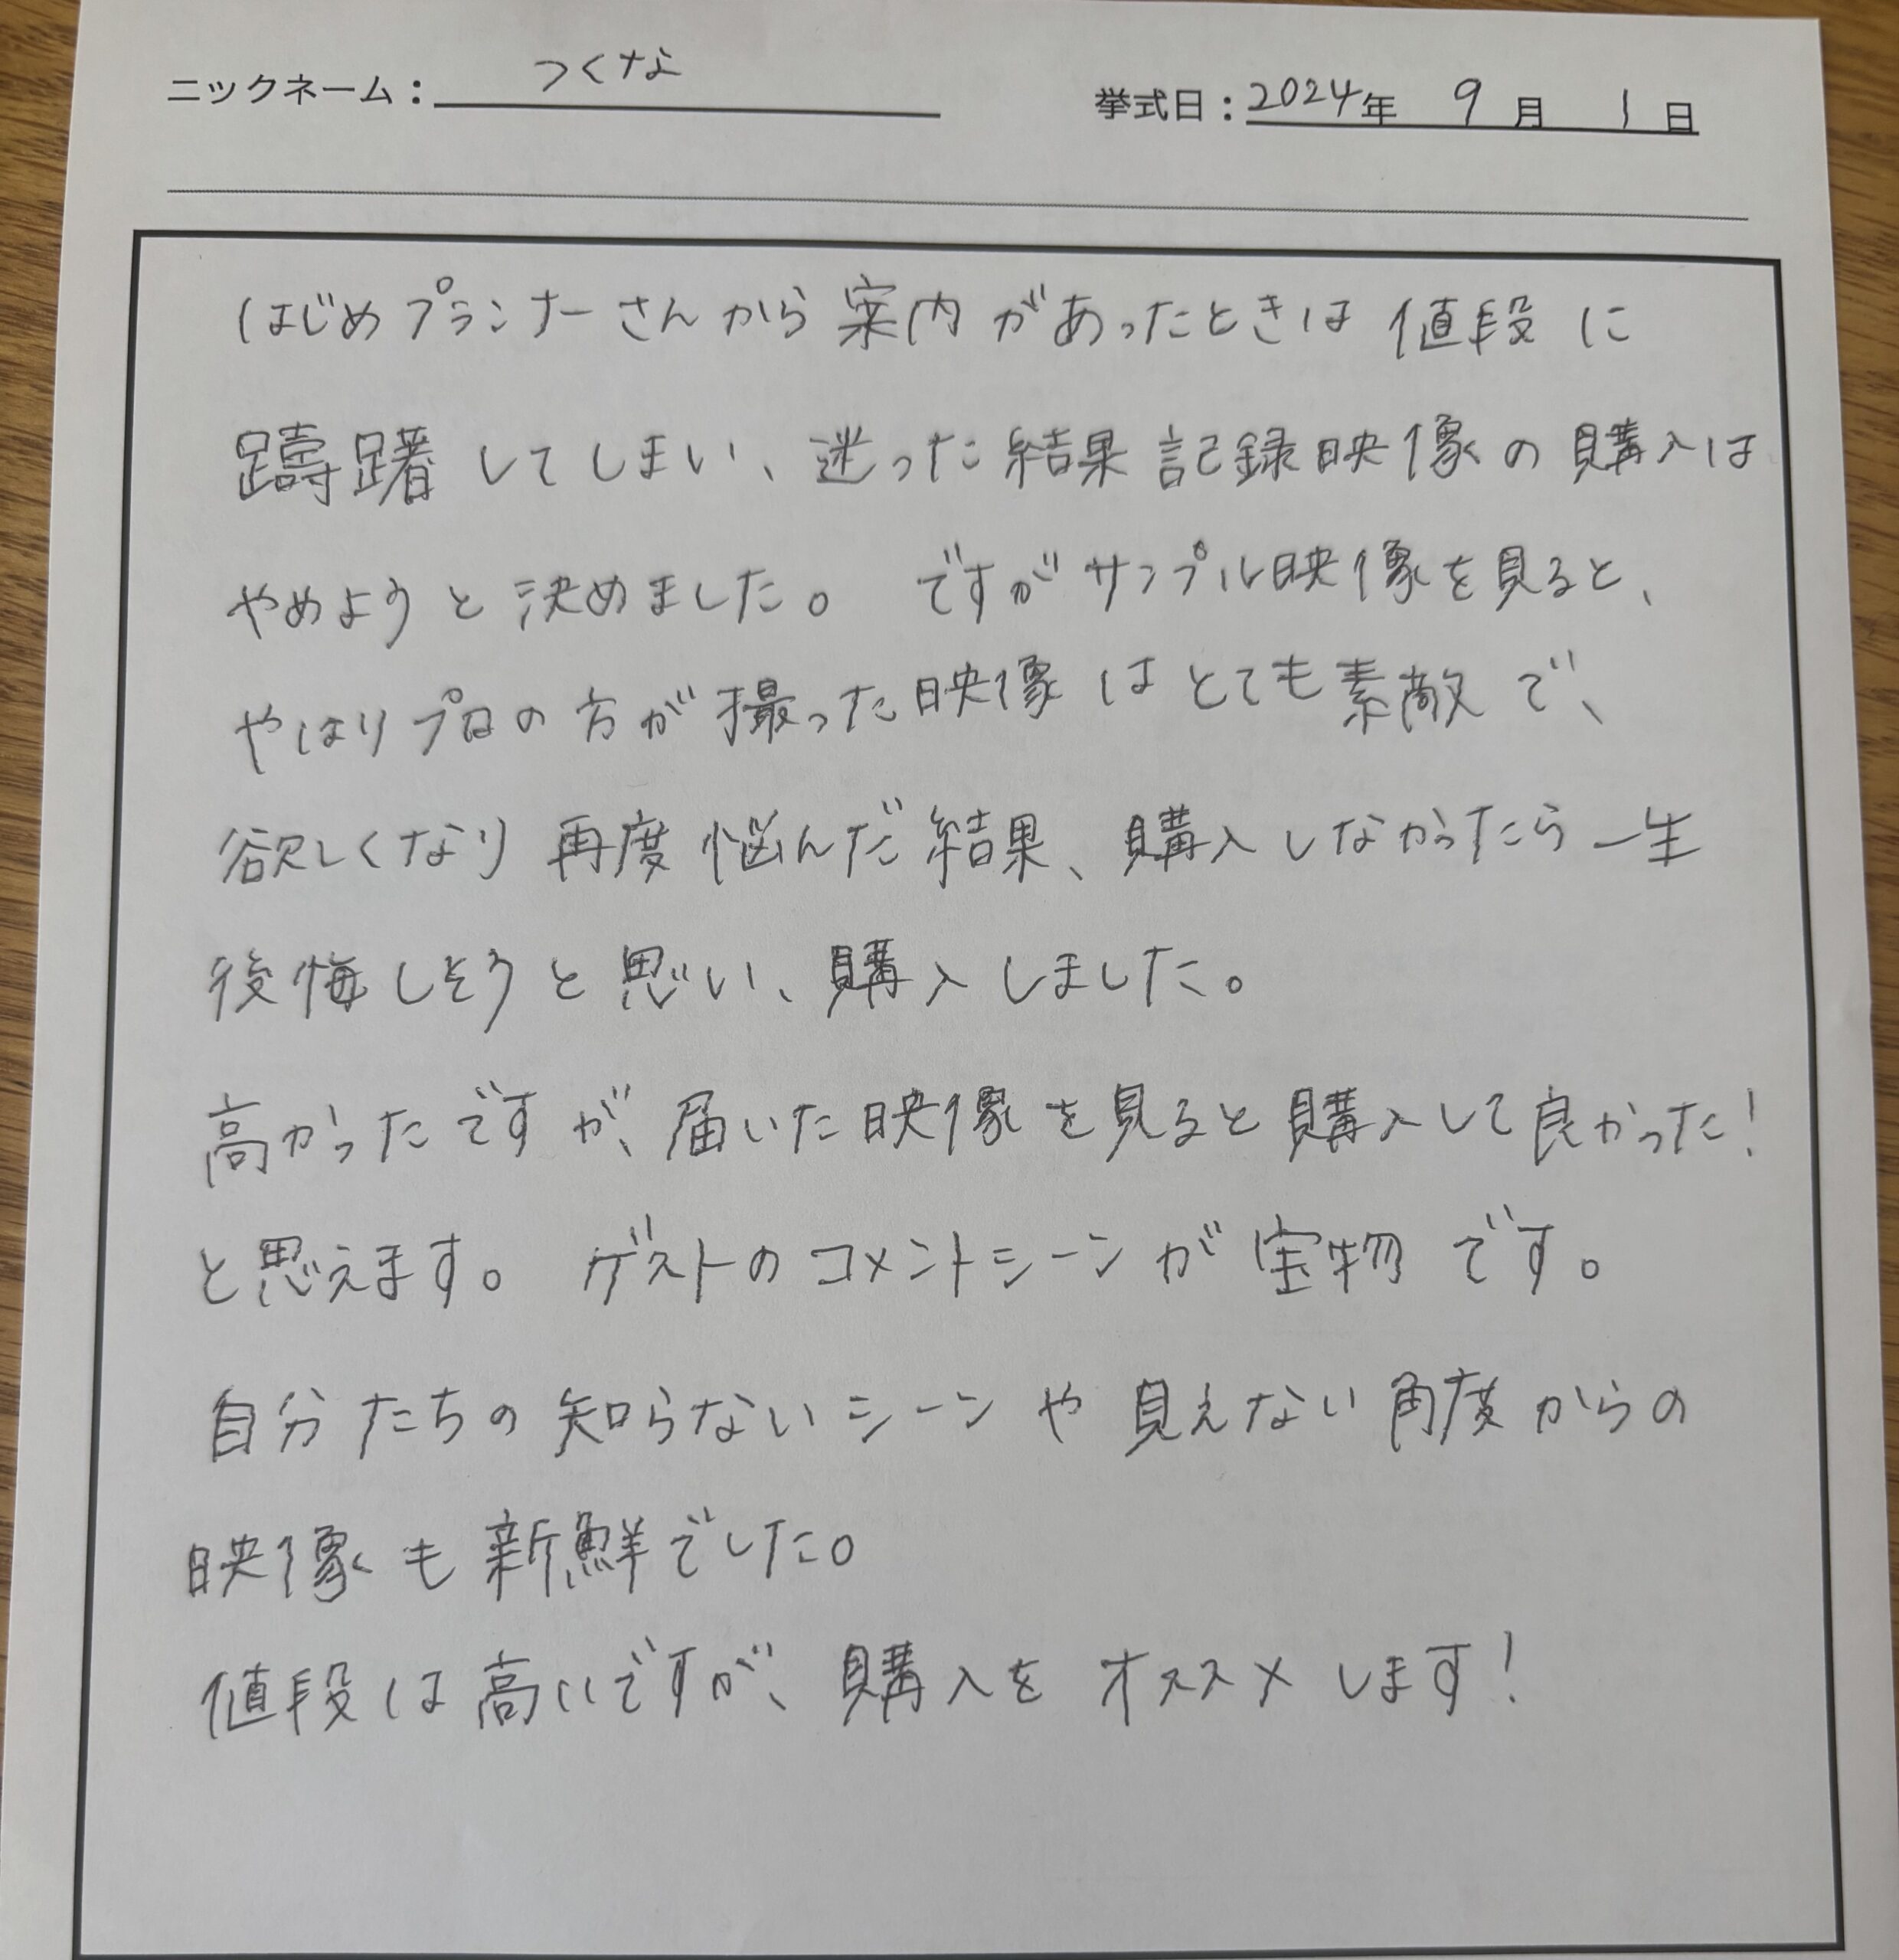 ニックネーム： つくな 挙式日：2024年 9月 1日
はじめプランナーさんから案内があったときは値段に
躊躇してしまい、迷った結果記録映像の購入は
やめようと決めました。ですがサンプル映像を見ると、
やはりプロの方が撮った映像はとても素敵で、
欲しくなり再度悩んだ結果、購入しなかったら一生
後悔しそうと思い、購入しました。
高かったですが、届いた映像を見ると購入して良かった！
と思えます。ゲストのコメントシーンが宝物です。
自分たちの知らないシーンや見えない角度からの
映像も新鮮でした。
値段は高いですが、購入をオススメします！